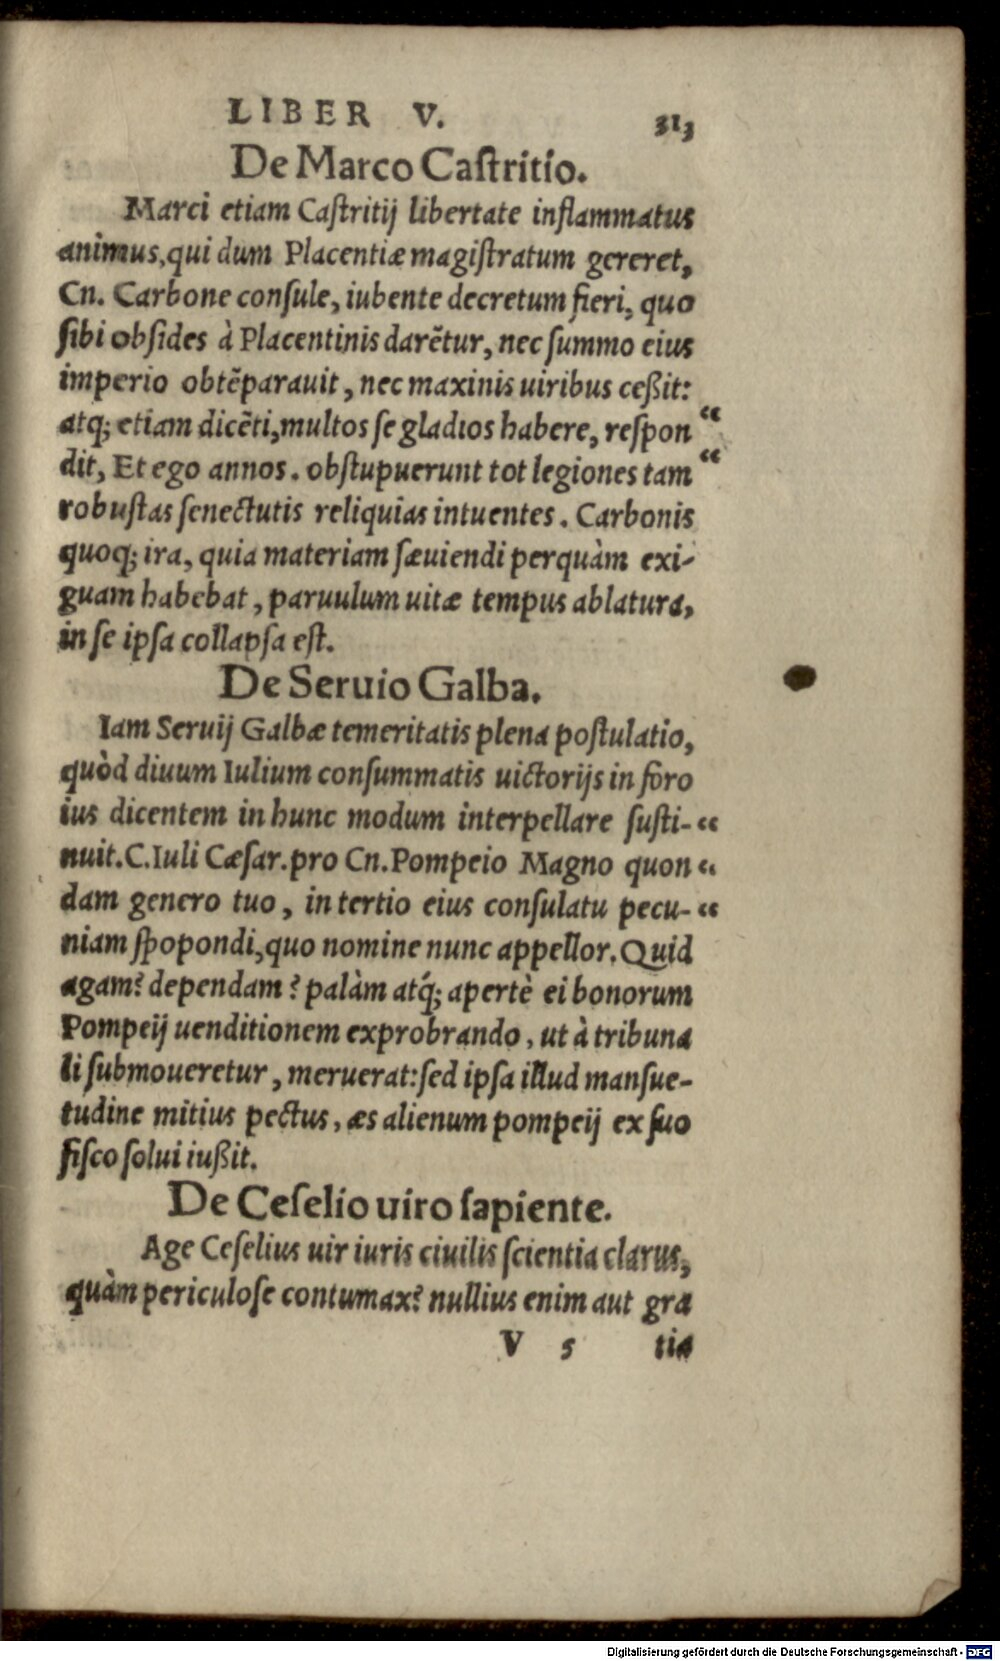 LIBER V. 313
De Marco Caſtritio.
Marci etiam Caſtritij libertate inflammatus
animus, qui dum Placentiæ magiſtratum gereret,
Cn. Carbone conſule, iubente decretum fieri, quo
ſibi obſides à Placentinis darẽtur, nec ſummo eius
imperio obtẽparauit, nec maxinis uiribus ceßit:
atq; etiam dicẽti, multos ſe gladios habere, reſpon “
dit, Et ego annos. obſtupuerunt tot legiones tam “
robuſtas ſenectutis reliquias intuentes. Carbonis
quoq; ira, quia materiam ſæuiendi perquàm exi-
guam habebat, paruulum uitæ tempus ablatura,
in ſe ipſa collapſa eſt.
De Seruio Galba.
Iam Seruij Galbæ temeritatis plena poſtulatio,
quòd diuum Iulium conſummatis uictorijs in foro
ius dicentem in hunc modum interpellare ſuſti- “
nuit. C. Iuli Cæſar. pro Cn. Pompeio Magno quon “
dam genero tuo, in tertio eius conſulatu pecu- “
niam ſpopondi, quo nomine nunc appellor. Quid
agam? dependam? palàm atq́; apertè ei bonorum
Pompeij uenditionem exprobrando, ut à tribuna
li ſubmoueretur, meruerat: ſed ipſa illud manſue-
tudine mitius pectus, æs alienum pompeij ex ſuo
fiſco ſolui iußit.
De Ceſelio uiro ſapiente.
Age Ceſelius uir iuris ciuilis ſcientia clarus,
quàm periculoſe contumax? nullius enim aut gra
V 5 tia
Digitalisierung gefördert durch die Deutsche Forschungsgemeinschaft - DFG